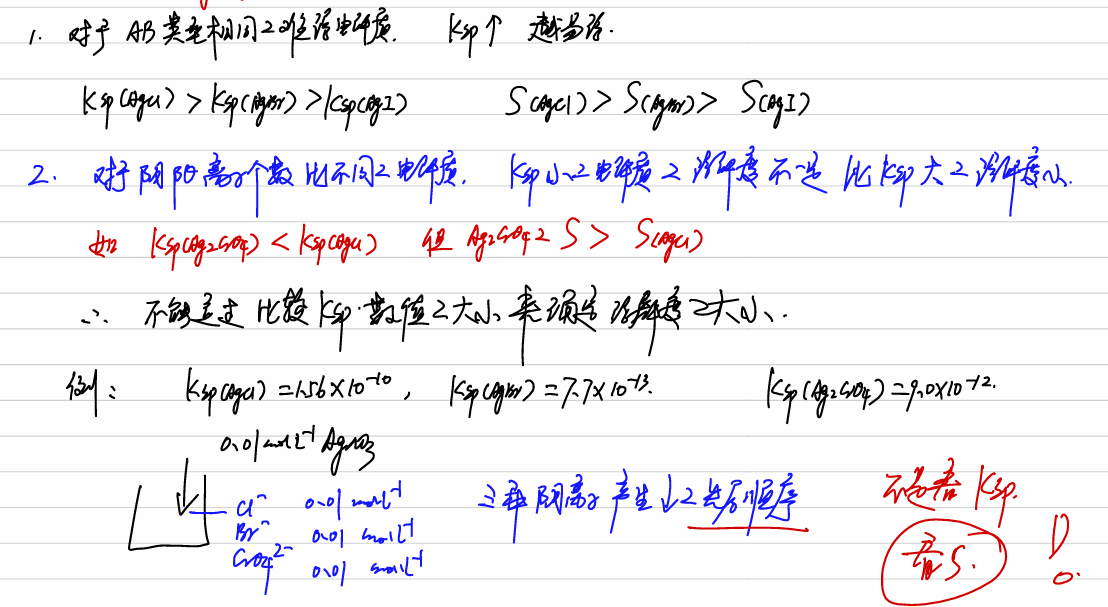 1. 对于 AB 类型相同之难溶电解质. Ksp↑ 越易溶.
Ksp(AgCl) > Ksp(AgBr) > Ksp(AgI) S(AgCl) > S(AgBr) > S(AgI)
2. 对于阴阳离子个数比不同之电解质. Ksp小之电解质之溶解度不一定比Ksp大之溶解度小.
如 Ksp(Ag₂CrO₄) < Ksp(AgCl) 但 Ag₂CrO₄之 S > S(AgCl)
∴ 不能通过比较Ksp数值之大小来确定溶解度之大小.
例: Ksp(AgCl) = 1.56×10⁻¹⁰, Ksp(AgBr) = 7.7×10⁻¹³. Ksp(Ag₂CrO₄) = 9.0×10⁻¹².
0.01 mol·L⁻¹ AgNO₃
Cl⁻ 0.01 mol·L⁻¹ 三种阴离子产生↓之先后顺序 不是看 Ksp.
Br⁻ 0.01 mol·L⁻¹
CrO₄²⁻ 0.01 mol·L⁻¹ 看 S. !